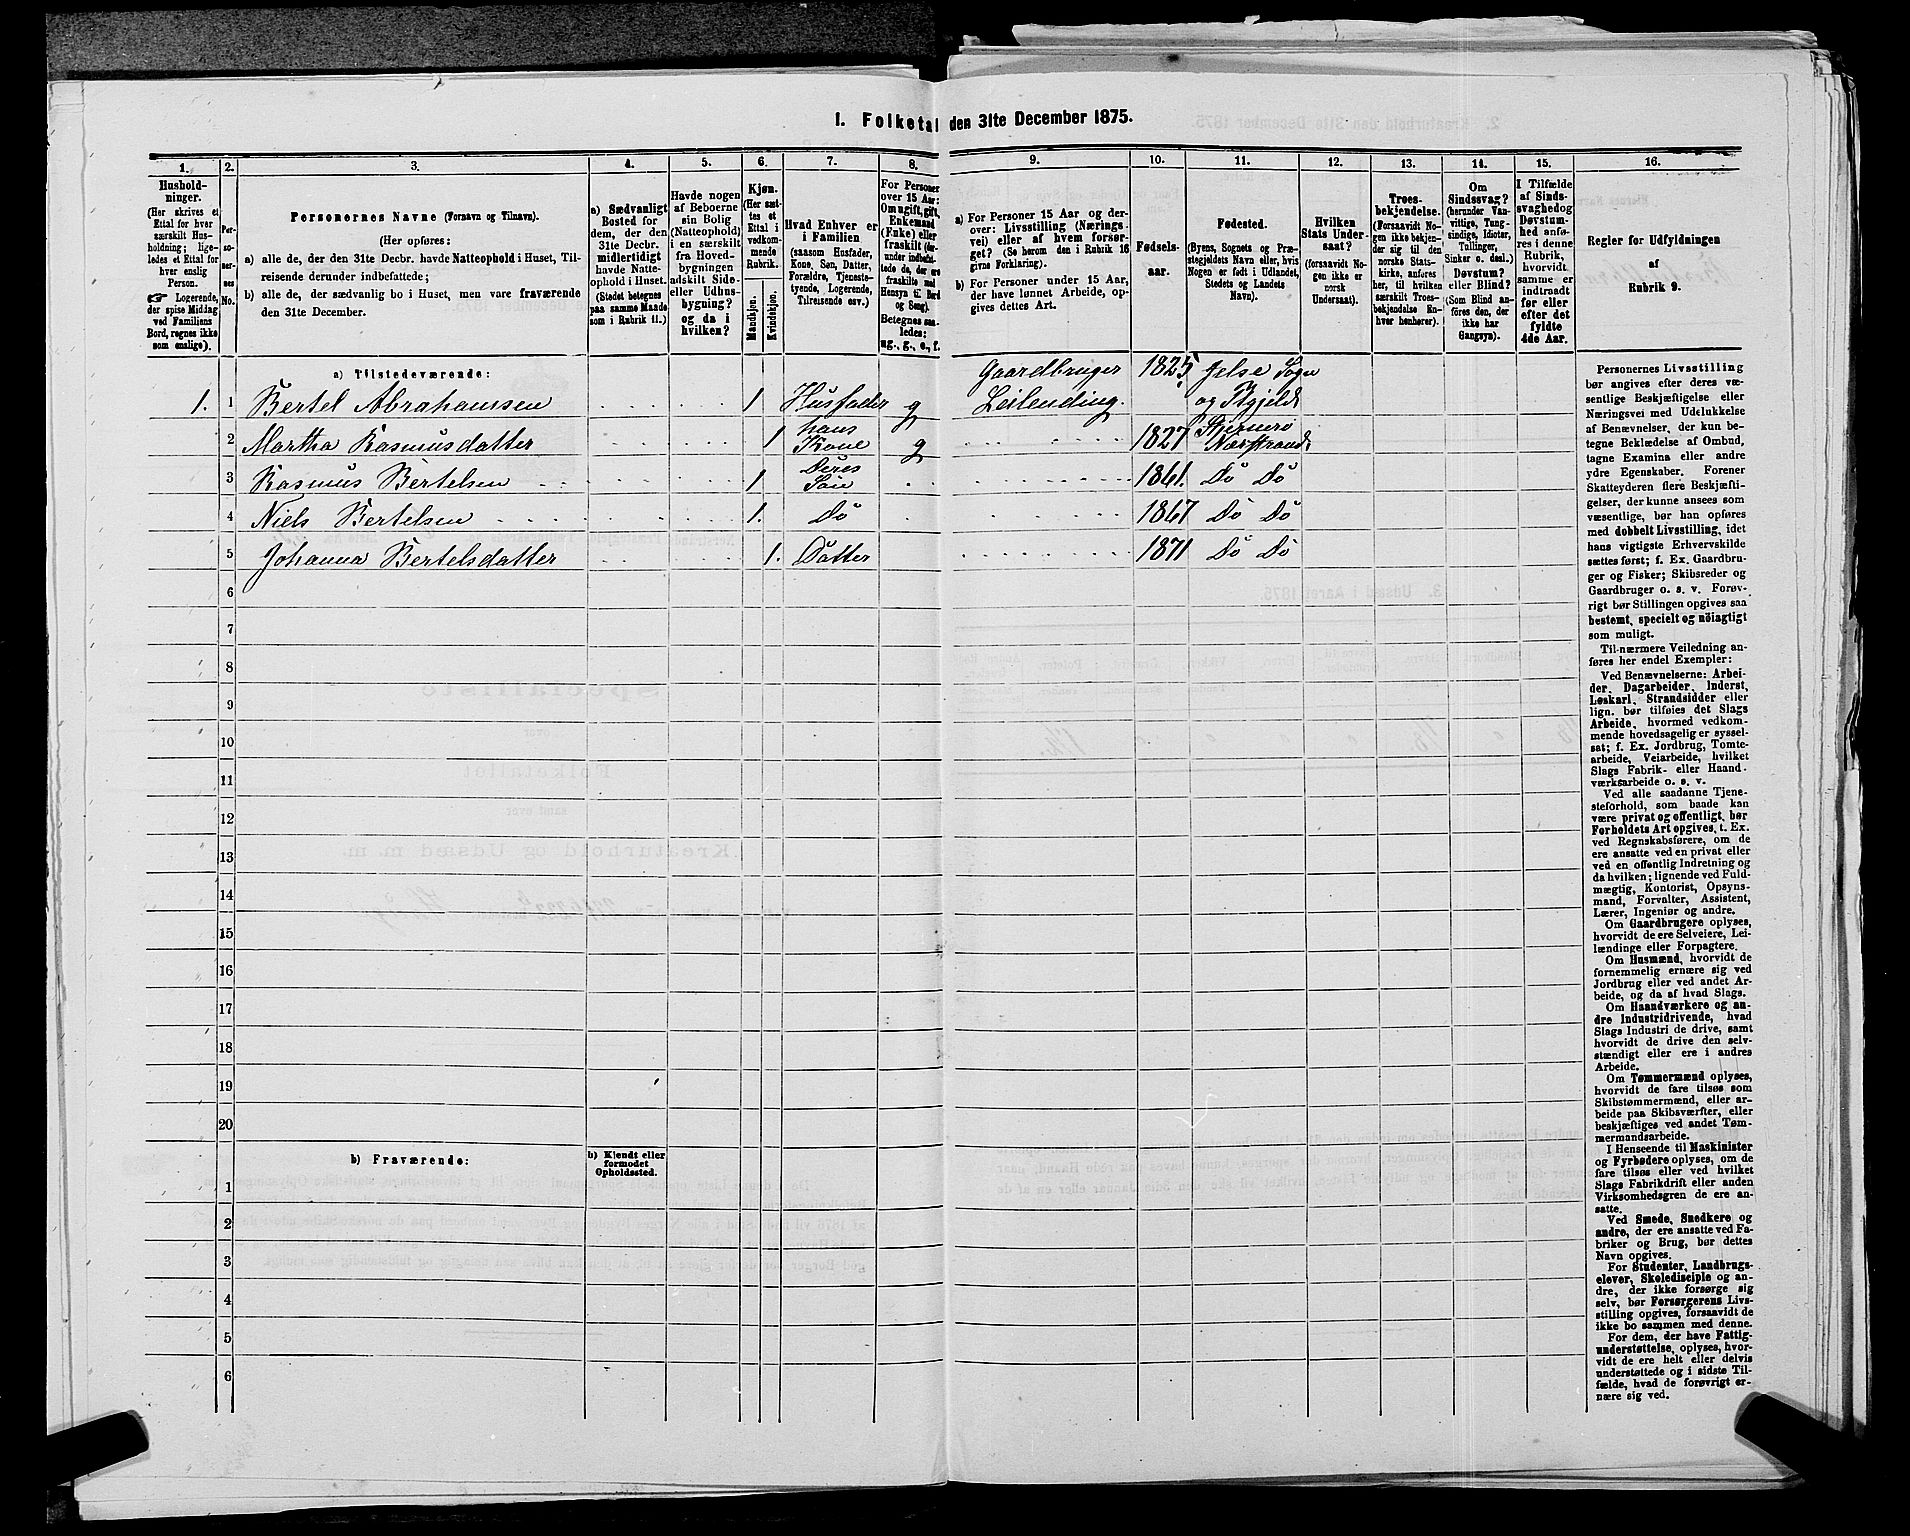 I. Folketal den 31te December 1875.
1. 2. 3. 4. 5. 6. 7. 8. 9. 10. 11. 12. 13. 14. 15. 16.
Hushold-
ninger.
(Her skrives et
Ettal for hver
særskilt Hus-
holdning; lige-
ledes et Ettal for
hver enslig
Person.
☞ Logerende,
der spise Middag
ved Familiens
Bord, regnes ikke
som enslige).
Per-
so-
ner-
nes-
No.
Personernes Navne (Fornavn og Tilnavn).
(Her opføres:
a) alle de, der den 31te Decbr. havde Natteophold i Huset, Til-
reisende derunder indbefattede;
b) alle de, der sædvanlig bo i Huset, men vare fraværende
den 31te December.
a) Sædvanligt
Bosted for
dem, der den
31te Decbr.
midlertidigt
havde Natte-
ophold i Huset.
(Stedet betegnes
paa samme Maade
som i Rubrik 11.)
Havde nogen
af Beboerne
sin Bolig
(Natteophold)
i en særskilt
fra Hoved-
bygningen
adskilt Side-
eller Udhus-
bygning?
og da i
hvilken?
Kjøn.
(Her sæt-
tes et
Ettal i
vedkom-
mende
Rubrik.
Mandkjøn.
Kvindekjøn.
Hvad Enhver er
i Familien
(saasom Husfader,
Kone, Søn, Datter,
Forældre, Tjeneste-
tyende, Logerende,
Tilreisende osv.)
For Personer
over 15 Aar:
Om ugift, gift,
Enkemand
(Enke) eller
fraskilt (der-
under indbefat-
tede de, der ere
fraskilte med
Hensyn til Bord
og Seng).
Betegnes saa-
ledes:
ug., g., e., f.
a) For Personer 15 Aar og der-
over: Livsstilling (Nærings-
vei) eller af hvem forsør-
get? (Se herom den i Rubrik 16
givne Forklaring).
b) For Personer under 15 Aar,
der have lønnet Arbeide, op-
gives dettes Art.
Fødsels-
aar.
Fødested.
(Byens, Sognets og Præ-
stegjeldets Navn eller, hvis
Nogen er født i Udlandet,
Stedets og Landets
Navn).
Hvilken
Stats Under-
saat?
(forsaavidt No-
gen ikke er
norsk
Undersaat).
Troes-
bekjendelse.
(Forsaavidt No-
gen ikke bekjen-
der sig til den
norske Stats-
kirke, anføres
her, til hvilken
særskilt Troes-
bekjendelse En-
hver henhører).
Om
Sindssvag?
(herunder Van-
vittige, Tung-
sindige, Idioter,
Tullinger,
Sinker o. desl.)
Døvstum?
eller Blind?
(Som Blind an-
føres den, der
ikke har
Gangsyn).
I Tilfælde
af Sinds-
svaghed og
Døvstum-
hed anfø-
res i denne
Rubrik,
hvorvidt
samme er
indtraadt
før eller
efter det
fyldte
4de Aar.
Regler for Udfyldningen
af
Rubrik 9.
a) Tilstedeværende:
1. 1 Bertel Abrahamsen 1 Husfader g Gaardbruger Leilending. 1825 Jelse Sogn og Pgjeld
2 Martha Rasmusdatter 1 hans Kone g 1827 Stjernerö Nærstrand
3 Rasmus Bertelsen 1 Deres Sön 1861. Dö Dö
4 Niels Bertelsen 1. Dö 1867 Dö Dö
5 Johanna Bertelsdatter 1. Datter 1871 Dö Dö
6
7
8
9
10
11
12
13
14
15
16
17
18
19
20
b) Fraværende:
b) Kjendt eller
formodet
Opholdssted.
1
2
3
4
5
6
Personernes Livsstilling
bør angives efter deres væ-
sentlige Beskjæftigelse eller
Næringsvei med Udelukkelse
af Benævnelser, der kun be-
tegne Beklædelse af Ombud,
tagne Examina eller andre
ydre Egenskaber. Forener
Skatteyderen flere Beskjæfti-
gelser, der kunne ansees som
væsentlige, bør han opføres
med dobbelt Livsstilling, idet
hans vigtigste Erhvervskilde
sættes først; f. Ex. Gaardbru-
ger og Fisker; Skibsreder og
Gaardbruger o. s. v. Forøv-
rigt bør Stillingen opgives saa
bestemt, specielt og nöiagtigt
som muligt.
Til nærmere Veiledning an-
føres her endel Exempler:
Ved Benævnelserne: Arbei-
der, Dagarbeider, Inderst,
Løskarl, Strandsidder eller
lign. bør tilføies det Slags
Arbeide, hvormed vedkom-
mende hovedsagelig er syssel-
sat; f. Ex. Jordbrug, Tomte-
arbeide, Veiarbeide, hvilket
Slags Fabrik- eller Haand-
værksarbeide o. s. v.
Ved alle saadanne Tjene-
steforhold, som baade kan
være privat og offentligt, bør
Forholdets Art opgives, t. Ex.
ved Regnskabsførere, om de
ere ansatte ved en privat eller
ved en offentlig Indretning og
da hvilken; lignende ved Fuld-
mægtig, Kontorist, Opsyns-
mand, Forvalter, Assistent,
Lærer, Ingeniør og andre.
Om Gaardbrugere oplyses,
hvorvidt de ere Selveiere, Lei-
lændinge eller Forpagtere.
Om Husmænd, hvorvidt de
fornemmelig ernære sig ved
Jordbrug eller ved andet Ar-
beide, og da af hvad Slags.
Om Haandværkere og an-
dre Industridrivende, hvad
Slags Industri de drive, samt
hvorvidt de drive den selv-
stændigt eller ere i andres
Arbeide.
Om Tømmermænd oplyses,
hvorvidt de fare tilsøs som
Skibstømmermænd, eller ar-
beide paa Skibsværfter, eller
beskjæftiges ved andet Tøm-
mermandsarbeide.
I Henseende til Maskinister
og Fyrbødere oplyses, om de
fare tilsøs eller ved hvilket
Slags Fabrikdrift eller anden
Virksomhedsgren de ere an-
satte.
Ved Smede, Snedkere og
andre, der ere ansatte ved Fa-
briker og Brug, bør dettes
Navn opgives.
For Studenter, Landbrugs-
elever, Skoledisciple og an-
dre, der ikke forsørge sig
selv, bør Forsørgerens Livs-
stilling opgives, forsaavidt de
ikke bo sammen med denne.
For dem, der have Fattig-
understøttelse, oplyses, hvor-
vidt de ere helt eller delvis
understøttede og i sidste Til-
fælde, hvad de forøvrigt er-
nære sig ved.